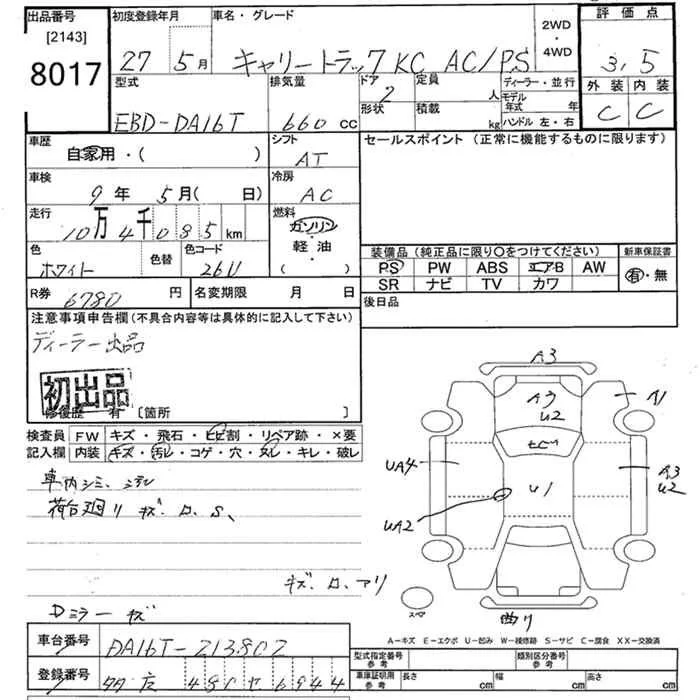 出品番号
[2143]
8017
初度登録年月
27 5月
車名・グレード
キャリートラック KC AC/PS
2WD
・
4WD
評価点
3.5
外装 内装
C C
型式
EBD-DA16T
排気量
660 cc
ドア
2
形状
定員
人
積載
kg
ディーラー・並行
モデル年式 年
ハンドル 左・右
車歴
自家用・( )
シフト
AT
車検
9年 5月( 日)
冷房
AC
走行
10万4千085 km
燃料
ガソリン
軽油
( )
色
ホワイト
色替
色コード
26U
R券 6780 円
名変期限 月 日
セールスポイント (正常に機能するものに限ります)
装備品(純正品に限り○をつけてください)
PS PW ABS エアB AW
SR ナビ TV カワ
新車保証書
有・無
後日品
注意事項申告欄(不具合内容等は具体的に記入して下さい)
ディーラー出品
初出品
修復歴 有 [箇所 ]
検査員
記入欄
FW キズ・飛石・ヒビ割・リペア跡・×要
内装 キズ・汚レ・コゲ・穴・ヌレ・キレ・破レ
車内シミ、
荷台廻り キズ、ロ、S、
キズ、ロ、アリ
Dミラーキズ
A3
A3
U2
A1
UA4
U1
A3
U2
UA2
スペア
曲リ
A-キズ E-エクボ U-凹み W-補修跡 S-サビ C-腐食 XX-交換済
車台番号
DA16T-213802
登録番号
480 や 6944
型式指定番号
参考
類別区分番号
参考
車庫証明用
参考
長さ cm
幅 cm
高さ cm